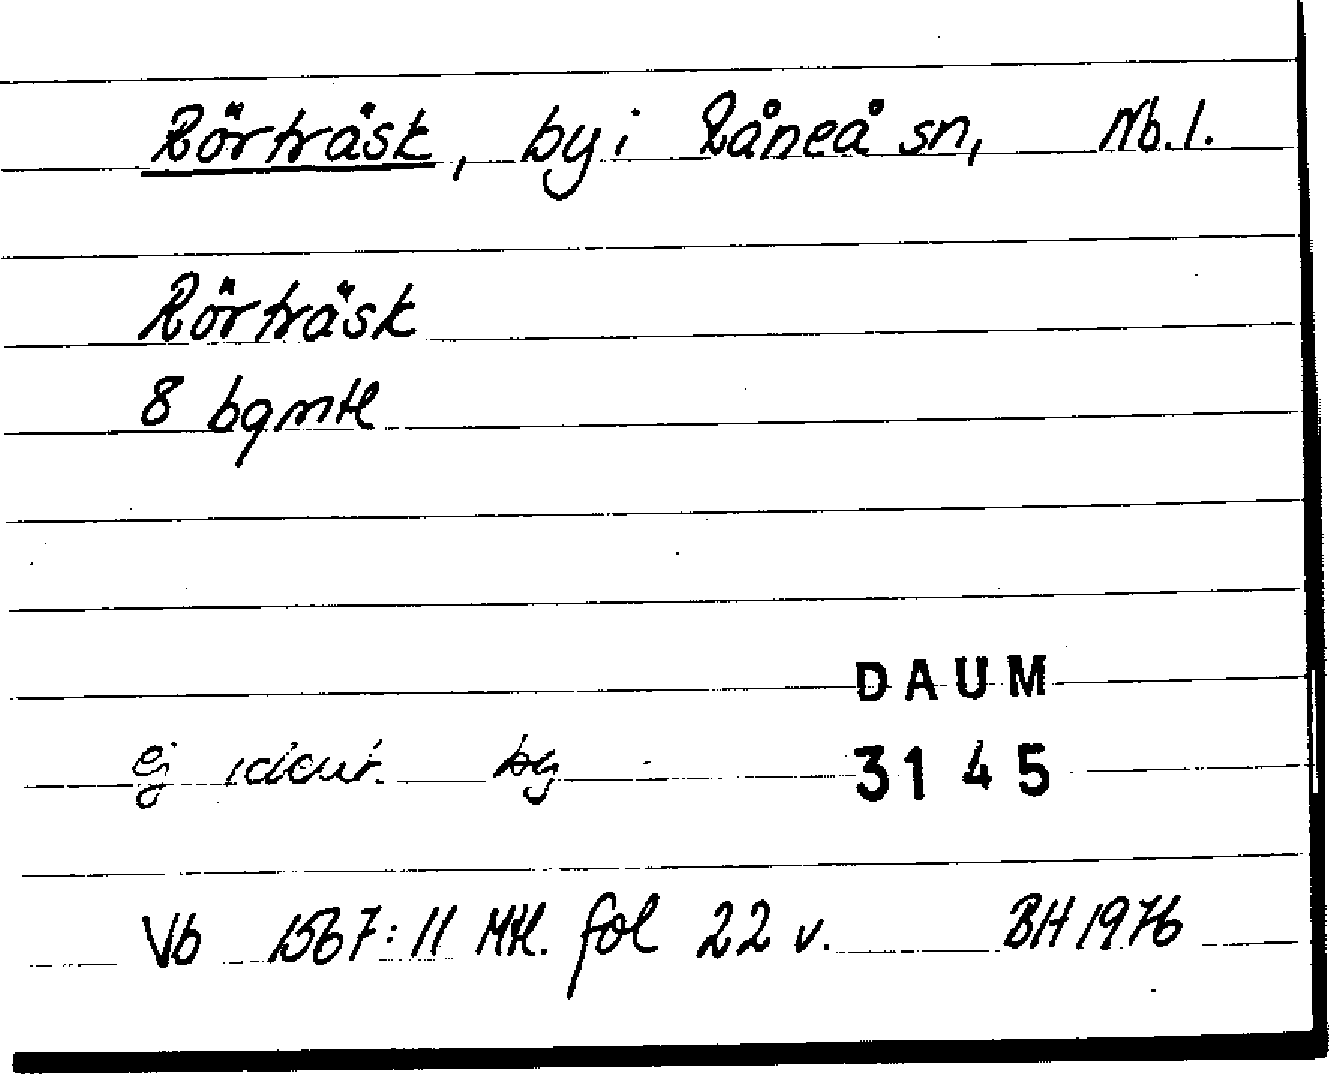 Rörträsk, by i Råneå sn, Nb.l.
Rörträsk
8 bgmtl
DAUM
ej ident. bg 3145
Vb 1567:11 Mtl. fol 22 v. BH 1976